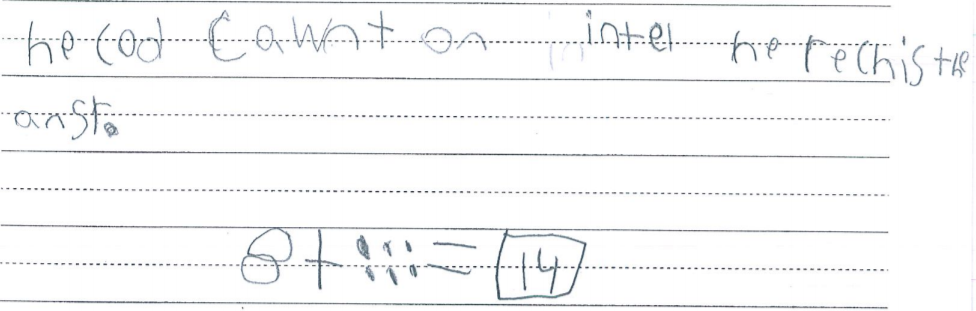 he cod cawnt on intel he rechis the
ansr.
8 + :::: = 14